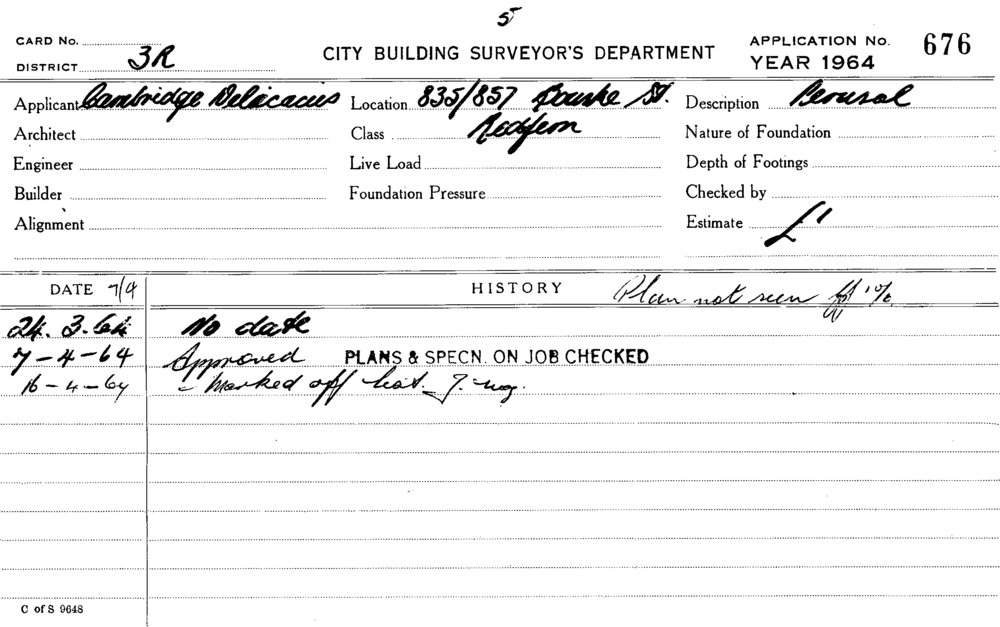 5
CARD No.
DISTRICT 3R
CITY BUILDING SURVEYOR'S DEPARTMENT
APPLICATION No. 676
YEAR 1964
Applicant Cambridge Delicacies Location 835/857 Bourke St. Description Perusal
Architect Class Redfern Nature of Foundation
Engineer Live Load Depth of Footings
Builder Foundation Pressure Checked by
Alignment Estimate £'
DATE 7/4 HISTORY Plan not seen
24. 3. 64 No date
7-4-64 Approved PLANS & SPECN. ON JOB CHECKED
16-4-64 Marked off
C of S 9648